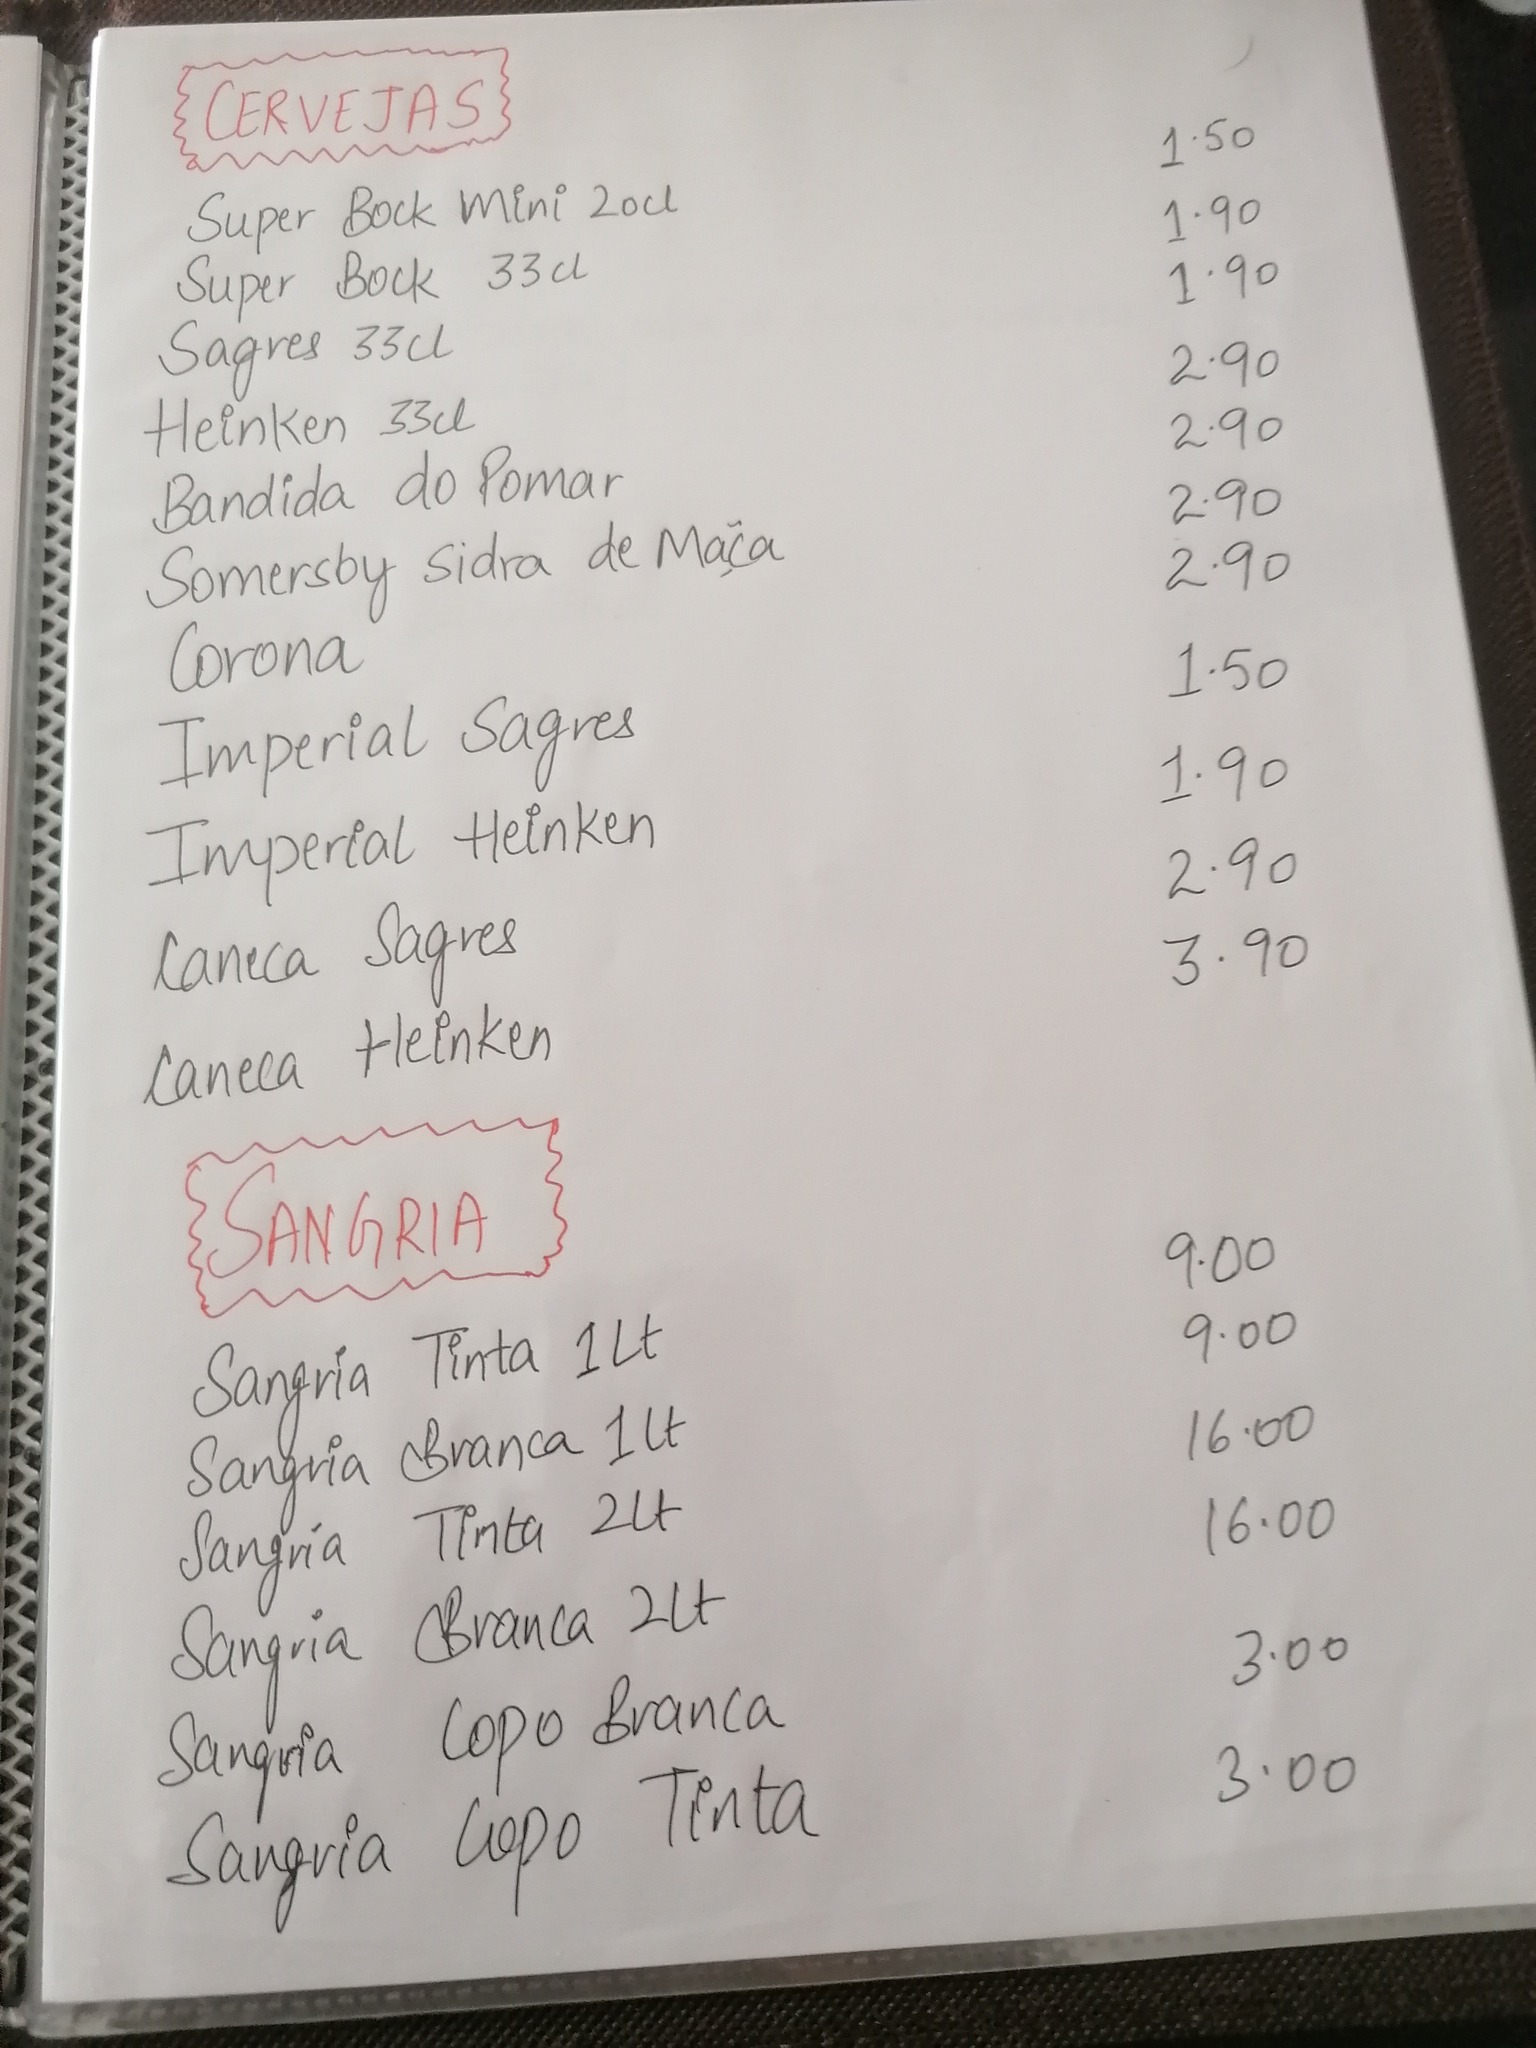 CERVEJAS
Super Bock Mini 20cl 1.50
Super Bock 33cl 1.90
Sagres 33cl 1.90
Heinken 33cl 2.90
Bandida do Pomar 2.90
Somersby Sidra de Maça 2.90
Corona 2.90
Imperial Sagres 1.50
Imperial Heinken 1.90
Caneca Sagres 2.90
Caneca Heinken 3.90
SANGRIA
Sangria Tinta 1Lt 9.00
Sangria Branca 1Lt 9.00
Sangria Tinta 2Lt 16.00
Sangria Branca 2Lt 16.00
Sangria Copo Branca 3.00
Sangria Copo Tinta 3.00